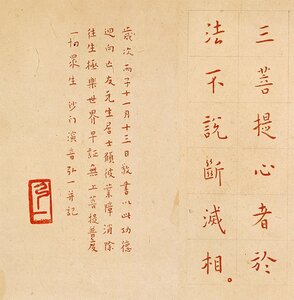 三菩提心者於
法不說斷滅相。
歲次丙子十一月十三日敬書以此功德
迴向亡友元生居士願彼業障消除
往生極樂世界早証無上菩提普度
一切眾生 沙門演音弘一并記
弘一